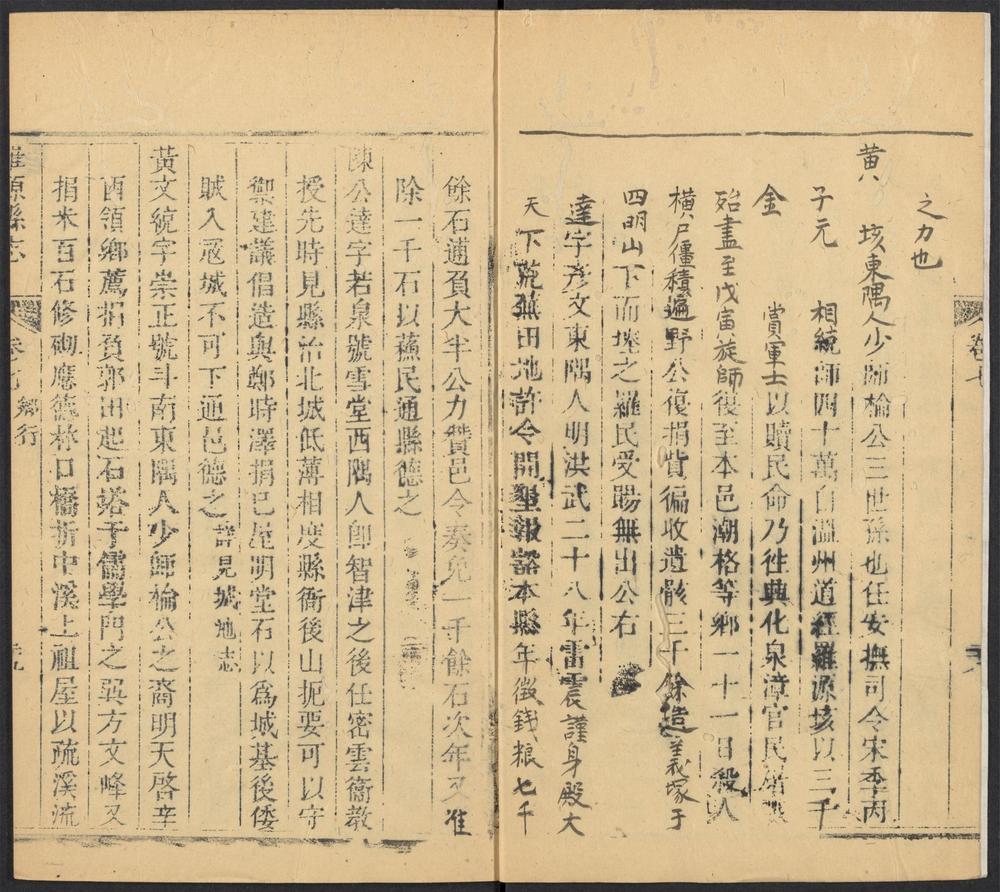 卷七
之力也
黄 垓東隅人少師榆公三世孫也任安撫司令宋季丙
子元 相統師四十萬自溫州道經羅源垓以三千
金 賞軍士以贖民命乃徃典化泉漳官民
殆盡至戊寅旋師復至本邑潮格等鄉一十一日殺人
橫尸僵積遍野公復捐貲徧收遺骸三千餘造義塚于
四明山下而瘞之羅民受賜無出公右
達字彥文東隅人明洪武二十八年雷震謹身殿大
天下荒蕪田地許令開墾報豁本縣年徵錢粮七千
餘石逋負大半公力贊邑令奏免一千餘石次年又准
除一千石以蘓民通縣德之
陳公達字若泉號雪堂西隅人卽智津之後任密雲衞教
授先時見縣治北城低薄相度縣衙後山扼要可以守
禦建議倡造與鄭時澤捐已屋明堂石以爲城基後倭
賊入冦城不可下通邑德之 詳見城池志
黃文統字崇正號斗南東隅人少師榆公之裔明天啓辛
酉領鄉薦捐負郭田起石塔于儒學門之巽方文峰又
捐米百石修砌應德林口橋折中溪上祖屋以疏溪流
羅源縣志 卷七 鄉行